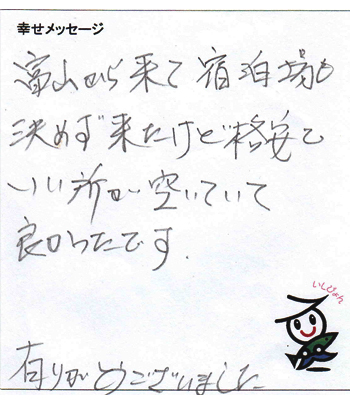 幸せメッセージ
富山から来て宿泊場も
決めず来たけど格安で
いい所が空いていて
良かったです.
いしぴょん
有りがとうございました